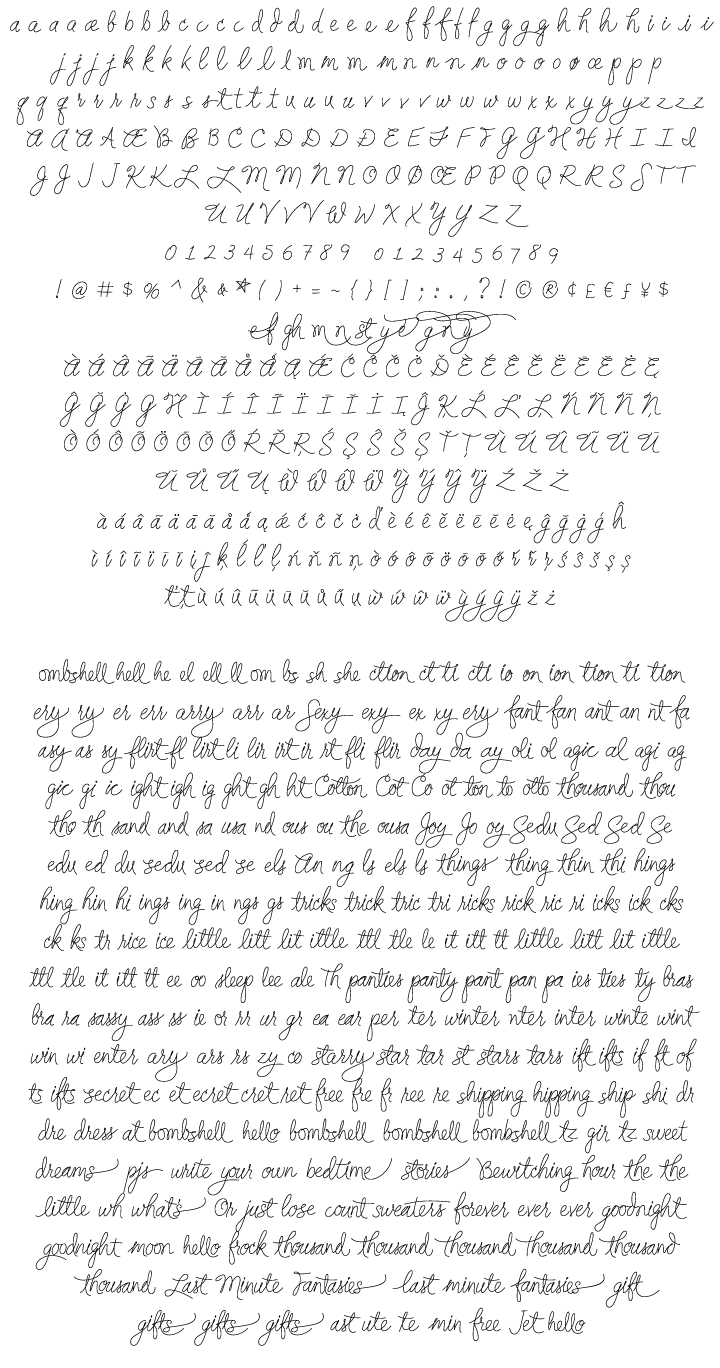 a a a a æ b b b b c c c c d d d d e e e e f f f f f g g g g h h h h i i i i
j j j j k k k k l l l l l m m m m n n n n o o o o o ø œ p p p
q q q r r r r s s s s t t t t u u u u v v v v w w w w x x x y y y z z z z
A A A A Æ B B B C C D D D Ð E E F F F G G H H H I I I
J J J J K K L L M M N N O O Ø Œ P P Q Q R R S S T T
U U V V V W W X X Y Y Z Z
0 1 2 3 4 5 6 7 8 9 0 1 2 3 4 5 6 7 8 9
! @ # $ % ^ & & * ( ) + = ~ { } [ ] ; : . , ? ! © ® ¢ £ € ƒ ¥ $
ef gh m n st y e g n y
À Á Â Ã Ä Ā Ă Å Ǻ Ą Ǽ Ć Č Ĉ Ċ Ď È É Ê Ě Ë Ē Ĕ Ė Ę
Ĝ Ğ Ġ Ģ Ħ Ì Í Î Ĩ Ï Ī Ĭ İ Į Ĵ Ķ Ĺ Ľ Ļ Ń Ň Ñ Ņ
Ò Ó Ô Õ Ö Ō Ŏ Ő Ŕ Ř Ŗ Ś Ş Ŝ Š Ș Ť Ţ Ù Ú Û Ũ Ü Ū
Ŭ Ů Ű Ų Ẁ Ẃ Ŵ Ẅ Ỳ Ý Ŷ Ÿ Ź Ž Ż
à á â ã ä ā ă å ǻ ą ǽ ć ĉ č ċ ď è é ê ě ë ē ĕ ė ę ĝ ğ ġ ģ ĥ
ì í î ĩ ï ī ĭ i į ĵ ķ ĺ ľ ļ ń ň ñ ņ ò ó ô õ ö ō ŏ ő ŕ ř ŗ ś ŝ š ş ș
ť ţ ù ú û ũ ü ū ŭ ů ű ų ẁ ẃ ŵ ẅ ỳ ý ŷ ÿ ž ż
ombshell hell he el ell ll om bs sh she ction ct ti cti io on ion tion ti tion
ery ry er err arry arr ar Sexy exy ex xy ery fant fan ant an nt fa
asy as sy flirt fl lirt li lir irt ir rt fli flir day da ay oli ol agic al agi ag
gic gi ic ight igh ig ght gh ht Cotton Cot Co ot ton to otto thousand thou
tho th sand and sa usa nd ous ou the ousa Joy Jo oy Sedu Sed Sed Se
edu ed du sedu sed se els An ng ls els ls things thing thin thi hings
hing hin hi ings ing in ngs gs tricks trick tric tri ricks rick ric ri icks ick cks
ck ks tr rice ice little litt lit ittle ttl tle le it itt tt little litt lit ittle
ttl tle it itt tt ee oo sleep lee ale Th panties panty pant pan pa ies ties ty bras
bra ra sassy ass ss ie or rr ur gr ea ear per ter winter nter inter winte wint
win wi enter ary ars rs zy co starry star tar st stars tars ift ifts if ft of
ts ifts secret ec et ecret cret ret free fre fr ree re shipping hipping ship shi dr
dre dress at bombshell hello bombshell bombshell bombshell tz gir tz sweet
dreams pjs write your own bedtime stories Bewitching hour the the
little wh what's Or just lose count sweaters forever ever ever goodnight
goodnight moon hello frock thousand thousand thousand thousand thousand
thousand Last Minute Fantasies last minute fantasies gift
gifts gifts gifts ast ute te min free Jet hello